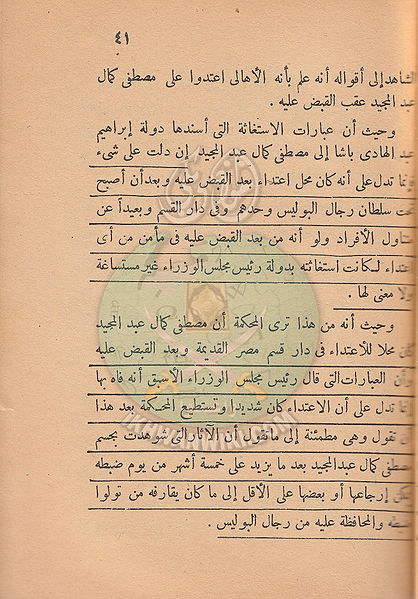 ٤١
الشاهد إلى أقواله أنه علم بأنه الأهالى اعتدوا على مصطفى كمال
عبد المجيد عقب القبض عليه .
وحيث أن عبارات الاستغاثة التى أسندها دولة إبراهيم
عبد الهادى باشا إلى مصطفى كمال عبد المجيد إن دلت على شىء
إنما تدل على أنه كان محل اعتداء بعد القبض عليه وبعد أن أصبح
تحت سلطان رجال البوليس وحدهم وفى دار القسم وبعيداً عن
متناول الأفراد ولو أنه من بعد القبض عليه فى مأمن من أى
اعتداء لكانت استغاثته بدولة رئيس مجلس الوزراء غير مستساغة
ولا معنى لها .
وحيث أنه من هذا ترى المحكمة أن مصطفى كمال عبد المجيد
محلا للاعتداء فى دار قسم مصر القديمة وبعد القبض عليه
وأن العبارات التى قال رئيس مجلس الوزراء الأسبق أنه فاه بها
إنما تدل على أن الاعتداء كان شديدا وتستطيع المحكمة بعد هذا
أن تقول وهى مطمئنة إلى ما تقول أن الآثار التى شوهدت بجسم
مصطفى كمال عبد المجيد بعد ما يزيد على خمسة أشهر من يوم ضبطه
يمكن إرجاعها أو بعضها على الأقل إلى ما كان يقارفه من تولوا
ضبطه والمحافظة عليه من رجال البوليس .
IKHWANWIKI.COM